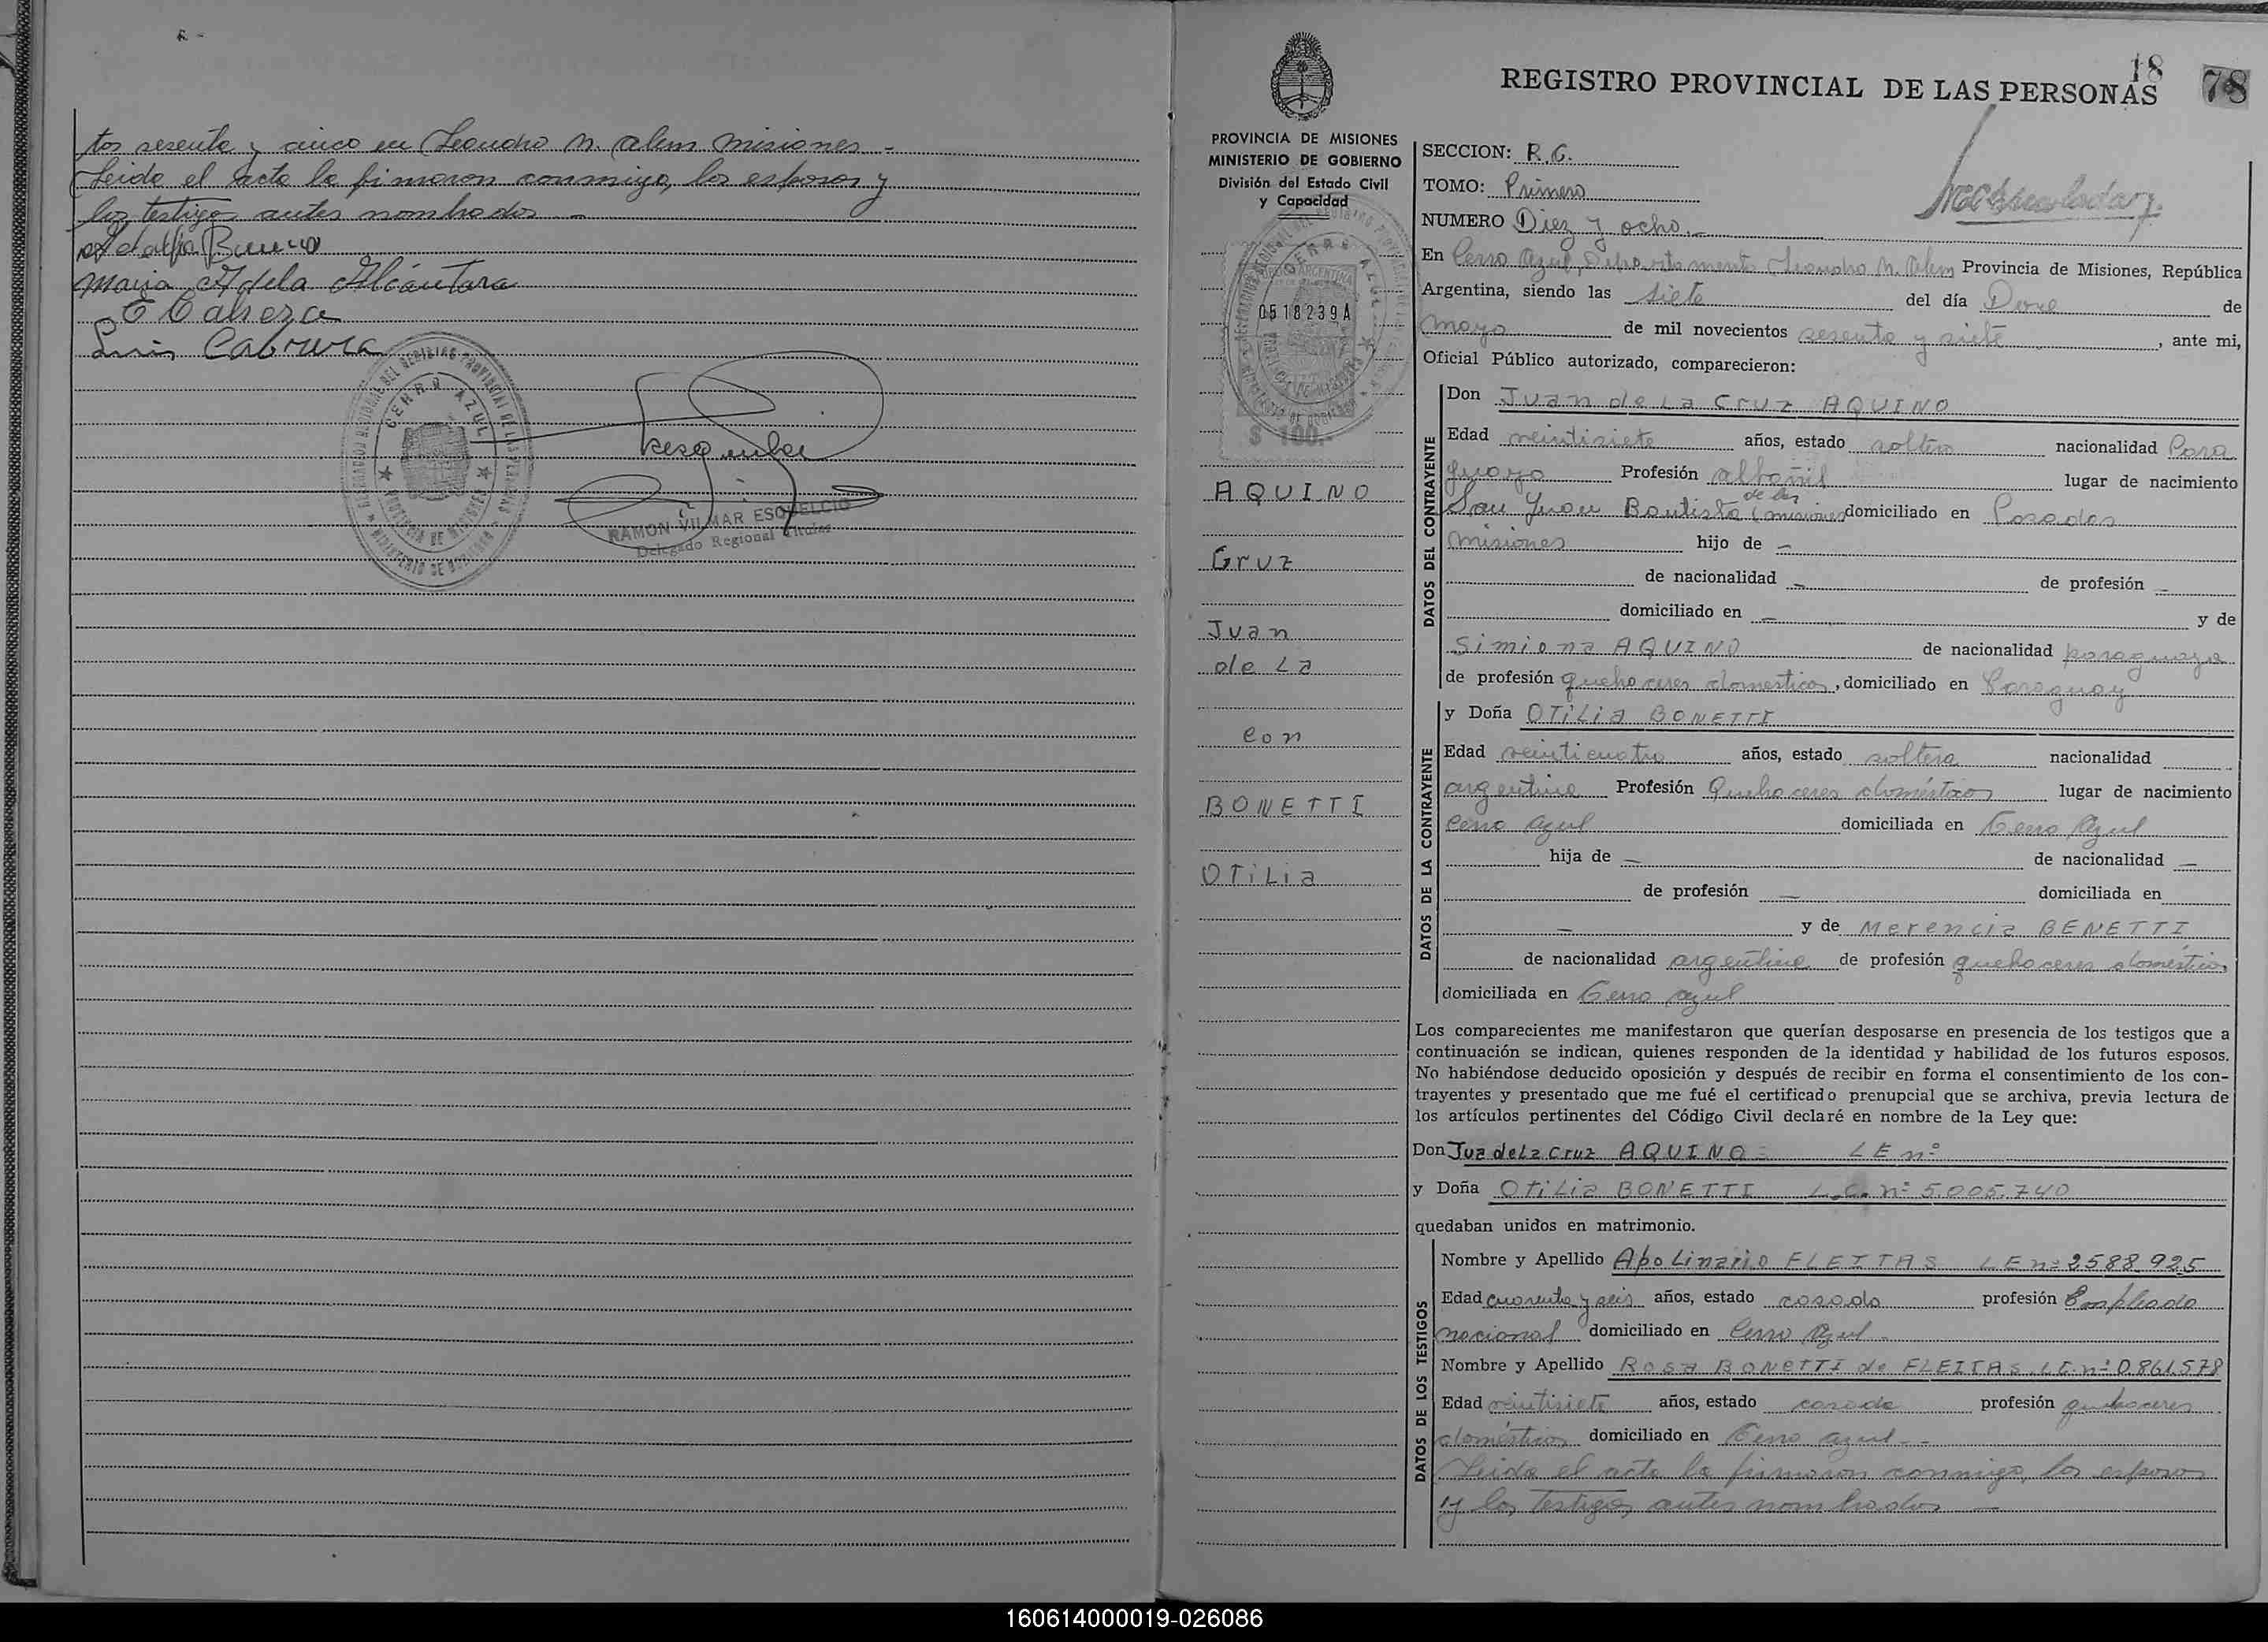 tos sesenta y cinco en Leandro N. Alem Misiones -
Leida el acta la firmaron conmigo, los esposos y
los testigos antes nombrados -
Maria Adela Alcántara
Luis Cabrera
CERRO AZUL
RAMON VILMAR ESQUELCIO
Delegado Regional Titular
18
78
REGISTRO PROVINCIAL DE LAS PERSONAS
PROVINCIA DE MISIONES
MINISTERIO DE GOBIERNO
División del Estado Civil
y Capacidad
CERRO AZUL
0518239A
$ 100.-
AQUINO
Cruz
Juan
de La
con
BONETTI
OTiLia
SECCION: R.C.
TOMO: Primero
NUMERO Diez y ocho.-
En Cerro Azul, Departamento Leandro N. Alem Provincia de Misiones, República
Argentina, siendo las siete del día Doce de
mayo de mil novecientos sesenta y siete, ante mi,
Oficial Público autorizado, comparecieron:
DATOS DEL CONTRAYENTE
Don Juan de La Cruz AQUINO
Edad veintisiete años, estado soltero nacionalidad Para
guaya Profesión albañil lugar de nacimiento
San Juan Bautista de las (misiones domiciliado en Posadas
misiones hijo de -
de nacionalidad - de profesión -
domiciliado en - y de
Simiona AQUINO de nacionalidad paraguaya
de profesión quehaceres domesticos, domiciliado en Paraguay
DATOS DE LA CONTRAYENTE
y Doña OTiLia BONETTI
Edad veinticuatro años, estado soltera nacionalidad
argentina Profesión Quehaceres domésticos lugar de nacimiento
Cerro Azul domiciliada en Cerro Azul
hija de - de nacionalidad -
de profesión - domiciliada en
- y de Merencia BENETTI
de nacionalidad argentina de profesión quehaceres domésticos
domiciliada en Cerro Azul
Los comparecientes me manifestaron que querían desposarse en presencia de los testigos que a
continuación se indican, quienes responden de la identidad y habilidad de los futuros esposos.
No habiéndose deducido oposición y después de recibir en forma el consentimiento de los con-
trayentes y presentado que me fué el certificado prenupcial que se archiva, previa lectura de
los artículos pertinentes del Código Civil declaré en nombre de la Ley que:
Don Jua de La Cruz AQUINO = LE nº
y Doña OTiLia BONETTI L.C. nº 5.005.740
quedaban unidos en matrimonio.
DATOS DE LOS TESTIGOS
Nombre y Apellido ApoLinario FLEITAS LE nº 2588.925
Edad cuarenta y seis años, estado casado profesión Empleado
nacional domiciliado en Cerro Azul -
Nombre y Apellido Rosa BONETTI de FLEITAS L.C. nº 0.861.578
Edad veintisiete años, estado casada profesión quehaceres
domésticos domiciliado en Cerro Azul - -
Leida el acta la firmaron conmigo, los esposos
y los testigos antes nombrados -
160614000019-026086